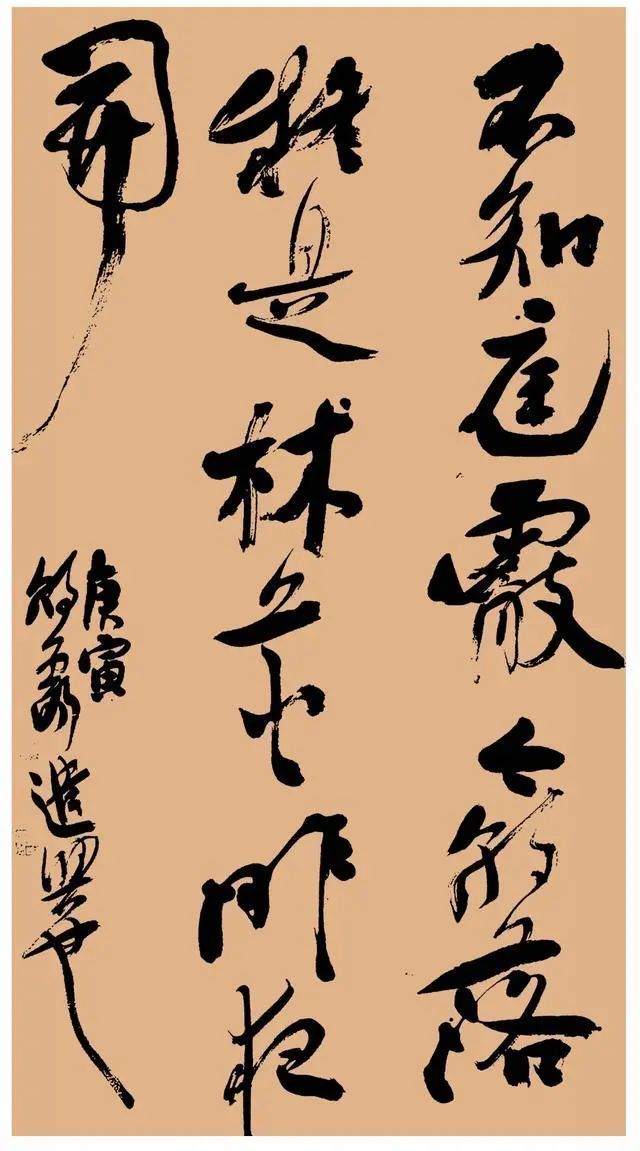 不知庭霰今朝落
疑是林花昨夜
開
庚寅
遣興也